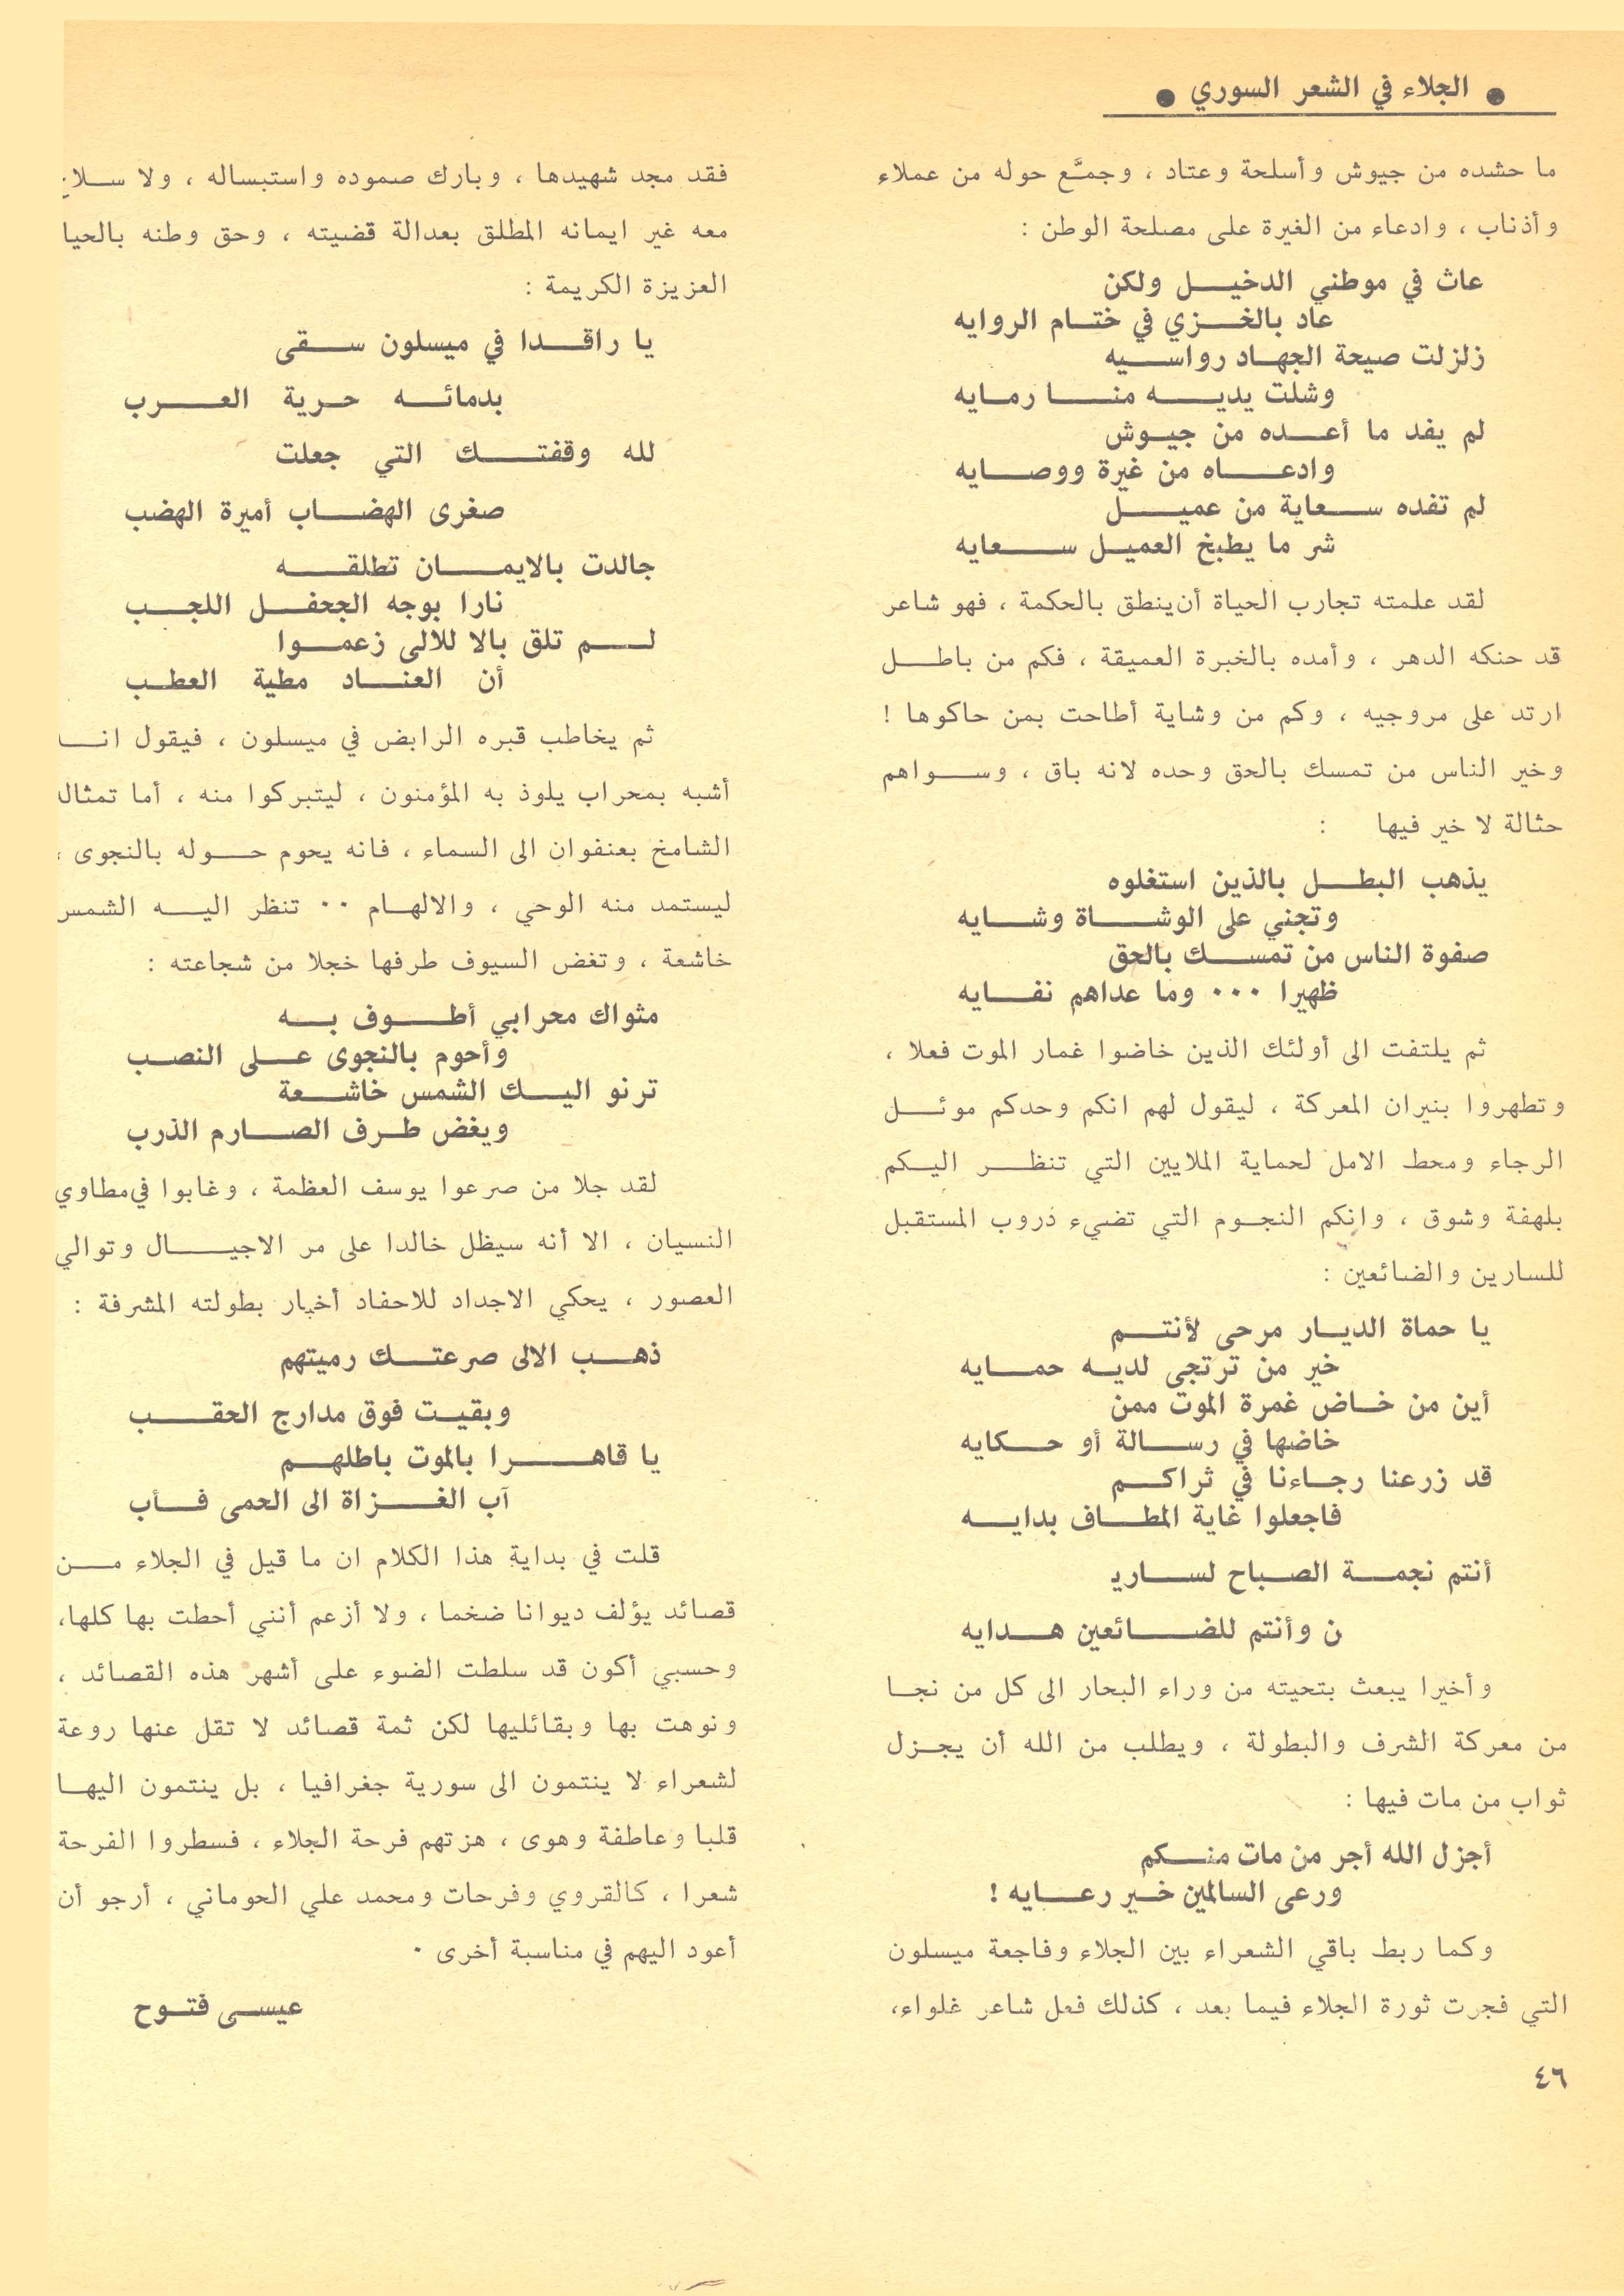 ● الجلاء في الشعر السوري ●
ما حشده من جيوش وأسلحة وعتاد ، وجمَّع حوله من عملاء
وأذناب ، وادعاء من الغيرة على مصلحة الوطن :
عاث في موطني الدخيـــل ولكن
عاد بالخــزي في ختـام الروايه
زلزلت صيحة الجهـاد رواسـيه
وشلت يديـــه منـــا رمـايه
لم يفد ما أعـــده من جيـوش
وادعـــاه من غيرة ووصـــايه
لم تفده ســـعاية من عميـــل
شر ما يطبخ العميـل ســـعايه
لقد علمته تجارب الحياة أن ينطق بالحكمة ، فهو شاعر
قد حنكه الدهر ، وأمده بالخبرة العميقة ، فكم من باطـــل
ارتد على مروجيه ، وكم من وشاية أطاحت بمن حاكوها !
وخير الناس من تمسك بالحق وحده لانه باق ، وســـواهم
حثالة لا خير فيها :
يذهب البطـــل بالذين استغلوه
وتجني على الوشـــاة وشـــايه
صفوة الناس من تمســـك بالحق
ظهيرا ٠٠٠ وما عداهم نفـــايه
ثم يلتفت الى أولئك الذين خاضوا غمار الموت فعلا ،
وتطهروا بنيران المعركة ، ليقول لهم انكم وحدكم موئـــل
الرجاء ومحط الامل لحماية الملايين التي تنظـــر اليـكم
بلهفة وشوق ، وانكم النجـوم التي تضيء دروب المستقبل
للسارين والضائعين :
يا حماة الديـــار مرحى لأنتـــم
خير من ترتجى لديـــه حمـــايه
أين من خـــاض غمرة الموت ممن
خاضها في رســـالة أو حـــكايه
قد زرعنا رجـــاءنا في ثراكـــم
فاجعلوا غاية المطـــاف بدايـــه
أنتم نجمـــة الصـــباح لســـاريـ
ن وأنتم للضـــائعين هـــدايه
وأخيرا يبعث بتحيته من وراء البحار الى كل من نجـــا
من معركة الشرف والبطولة ، ويطلب من الله أن يجـــزل
ثواب من مات فيها :
أجزل الله أجر من مات منـــكم
ورعى السالمين خـــير رعـــايه !
وكما ربط باقي الشعراء بين الجلاء وفاجعة ميسلون
التي فجرت ثورة الجلاء فيما بعد ، كذلك فعل شاعر غلواء،
٤٦
فقد مجد شهيدها ، وبارك صموده واستبساله ، ولا ســـلاح
معه غير ايمانه المطلق بعدالة قضيته ، وحق وطنه بالحيا
العزيزة الكريمة :
يا راقـــدا في ميسلون ســـقى
بدمائـــه حـــرية العـــرب
لله وقفتـــك التي جعلت
صغرى الهضـــاب أميرة الهضب
جالدت بالايمـــان تطلقـــه
نارا بوجه الجحفـــل اللجـــب
لـــم تلق بالا للالى زعمـــوا
أن العنـــاد مطية العطـــب
ثم يخاطب قبره الرابض في ميسلون ، فيقول انـــ
أشبه بمحراب يلوذ به المؤمنون ، ليتبركوا منه ، أما تمثال
الشامخ بعنفوان الى السماء ، فانه يحوم حـــوله بالنجوى ،
ليستمد منه الوحي ، والالهـــام ٠٠ تنظر اليـــه الشمس
خاشعة ، وتغض السيوف طرفها خجلا من شجاعته :
مثواك محرابي أطـــوف بـــه
وأحوم بالنجوى عـــلى النصـــب
ترنو اليـــك الشمس خاشـــعة
ويغض طـــرف الصـــارم الذرب
لقد جلا من صرعوا يوسف العظمة ، وغابوا في مطاوي
النسيان ، الا أنه سيظل خالدا على مر الاجيـــال وتوالي
العصور ، يحكي الاجداد للاحفاد أخبار بطولته المشرفة :
ذهـــب الالى صرعتـــك رميتهم
وبقيـــت فوق مدارج الحقـــب
يا قاهـــرا بالموت باطلهـــم
آب الغـــزاة الى الحمى فـــأب
قلت في بداية هذا الكلام ان ما قيل في الجلاء مـــن
قصائد يؤلف ديوانا ضخما ، ولا أزعم أنني أحطت بها كلها،
وحسبي أكون قد سلطت الضوء على أشهر هذه القصائد ،
ونوهت بها وبقائليها لكن ثمة قصائد لا تقل عنها روعة
لشعراء لا ينتمون الى سورية جغرافيا ، بل ينتمون اليهـــا
قلبا وعاطفة وهوى ، هزتهم فرحة الجلاء ، فسطروا الفرحة
شعرا ، كالقروي وفرحات ومحمد علي الحوماني ، أرجو أن
أعود اليهم في مناسبة أخرى ٠
عيســـى فتـــوح